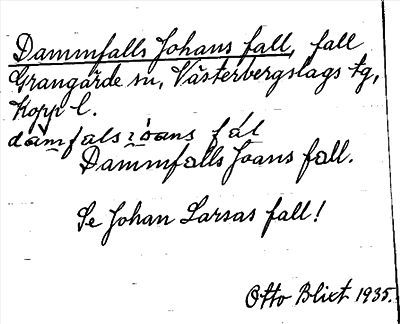 Dammfalls Johans fall, fall
Grangärde sn, Västerbergslags tg,
Kopp l.
dàmfals ɿòans fál
Dammfalls Joans fall.
Se Johan Larsas fall!
Otto Blixt 1935.